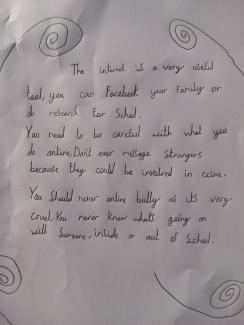 The internet is a very useful
tool, you can Facebook your Family or
do research For School.
You need to be careful with what you
do online, Don't ever message Strangers
because they could be involved in crime.
You Should never online bully as its very
cruel, You never know what's going on
with Someone, inside or out of School.